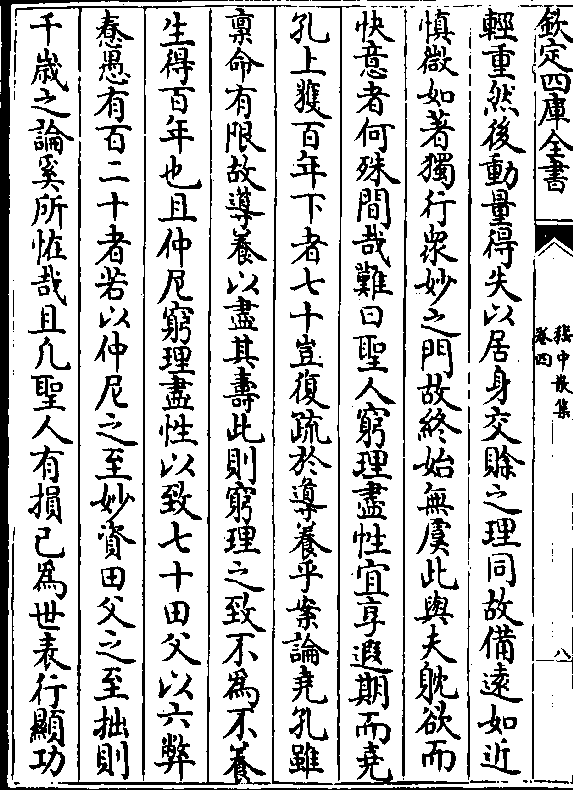 欽定四庫全書
嵇中散集
卷四
八
輕重然後動量得失以居身交賒之理同故備逺如近
慎微如著獨行衆妙之門故終始無虞此與夫躭欲而
快意者何殊間哉難曰聖人窮理盡性宜享遐期而堯
孔上獲百年下者七十豈復疏於導養乎案論堯孔雖
禀命有限故導養以盡其壽此則窮理之致不為不養
生得百年也且仲尼窮理盡性以致七十田父以六弊
惷愚有百二十者若以仲尼之至妙資田父之至拙則
千嵗之論奚所怪哉且凡聖人有損己為世表行顯功